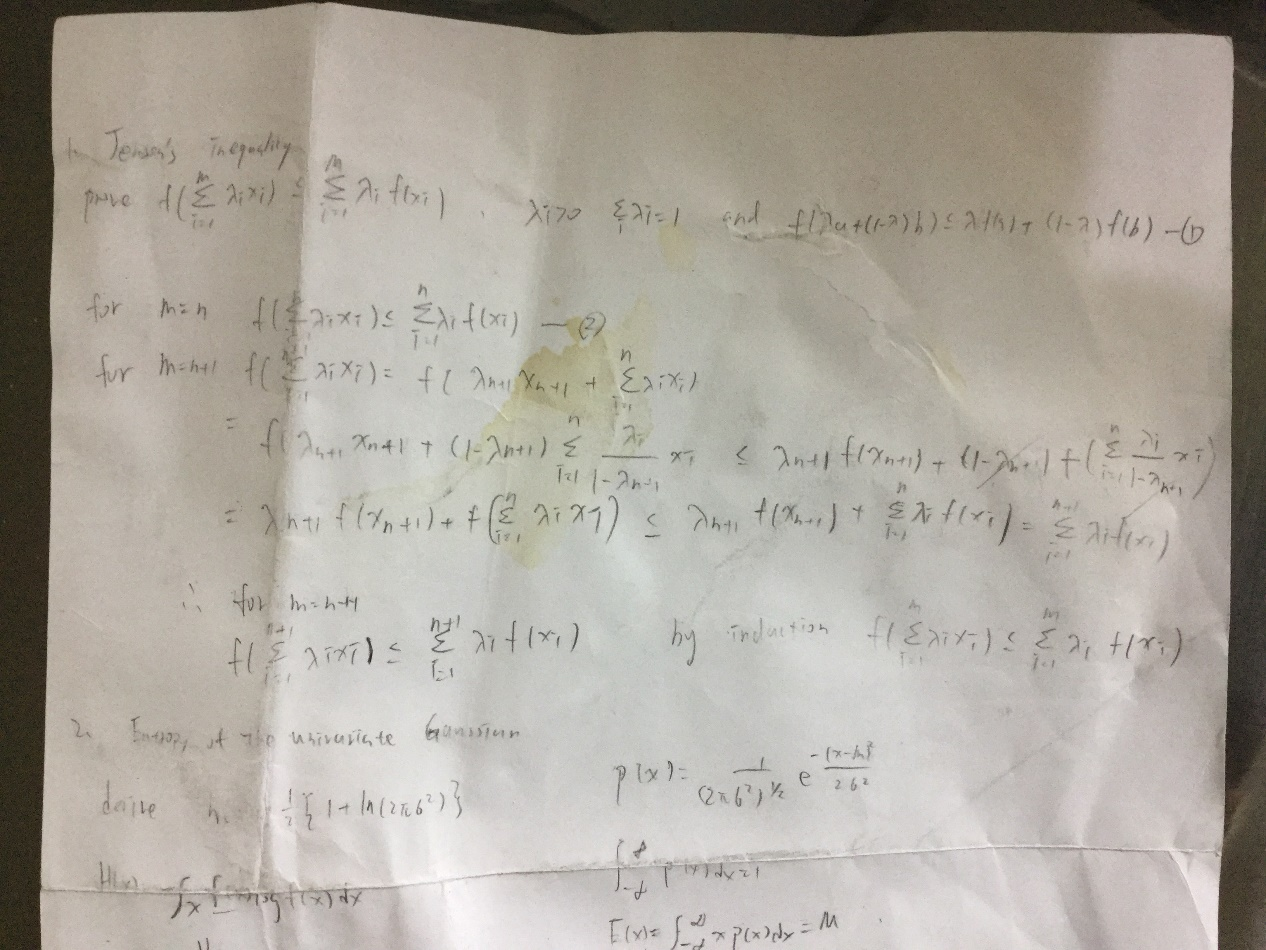 1. Jensen's inequality
prove f(∑_{i=1}^{m} λixi) ≤ ∑_{i=1}^{m} λi f(xi) , λi>0 ∑_i λi=1 and f(λa+(1-λ)b) ≤ λf(a)+(1-λ)f(b) —①
for m=n f(∑λixi) ≤ ∑_{i=1}^{n} λi f(xi) —②
for m=n+1 f(∑_{i=1}^{n+1} λixi) = f( λn+1 xn+1 + ∑_{i=1}^{n} λixi)
= f( λn+1 xn+1 + (1-λn+1) ∑_{i=1}^{n} λi/(1-λn+1) xi ≤ λn+1 f(xn+1) + (1-λn+1) f(∑_{i=1}^{n} λi/(1-λn+1) xi)
= λn+1 f(xn+1) + f(∑_{i=1}^{n} λixi) ≤ λn+1 f(xn+1) + ∑_{i=1}^{n} λi f(xi) = ∑_{i=1}^{n+1} λif(xi)
∴ for m=n+1
f(∑_{i=1}^{n+1} λixi) ≤ ∑_{i=1}^{n+1} λi f(xi) by induction f(∑_{i=1}^{m} λixi) ≤ ∑_{i=1}^{m} λi f(xi)
2. Entropy of the univariate Gaussian
p(x) = 1/(2πσ²)^{1/2} e^{-(x-μ)²/2σ²}
derive 1/2 { 1+ ln(2πσ²)}
∫_{-∞}^{∞} p(x)dx=1
H(x) f(x)dx
E(x) = ∫_{-∞}^{∞} x p(x)dx = μ